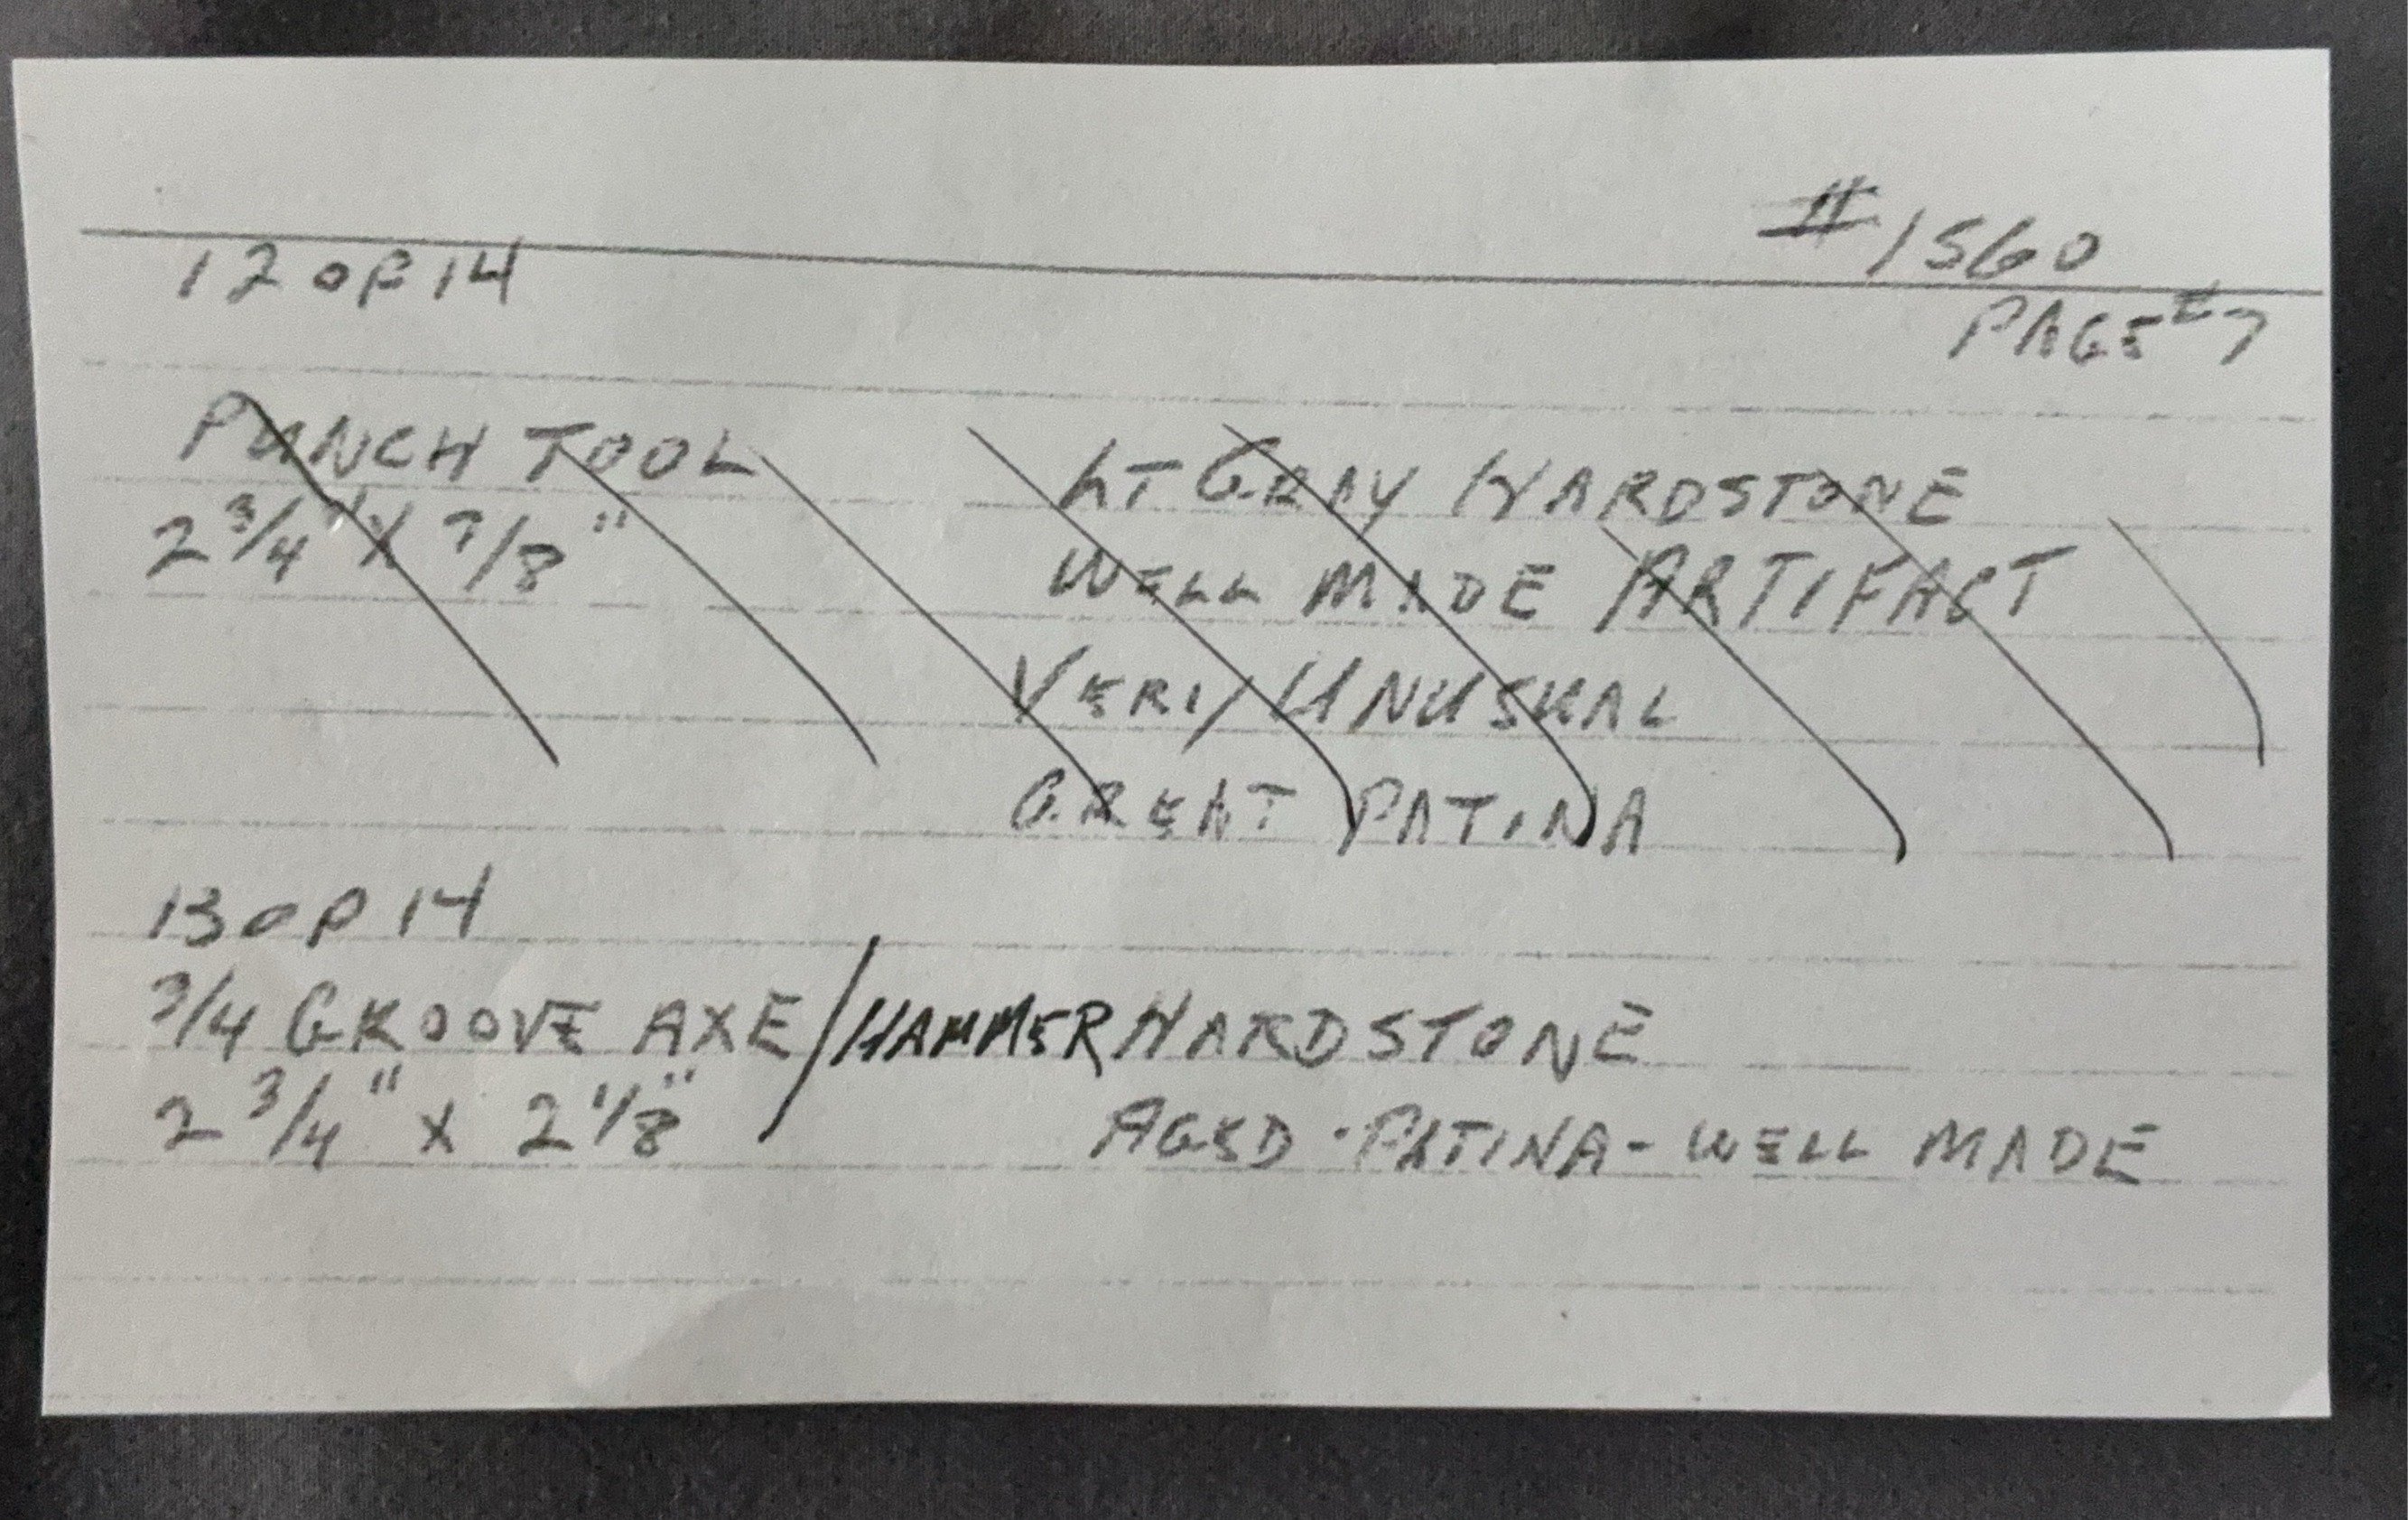 #1560
12 OF 14
PAGE #7
PUNCH TOOL
LT GRAY HARDSTONE
2 3/4" X 7/8"
WELL MADE ARTIFACT
VERY UNUSUAL
GREAT PATINA
13 OF 14
3/4 GROOVE AXE/HAMMER HARDSTONE
2 3/4" X 2 1/8"
AGED - PATINA - WELL MADE